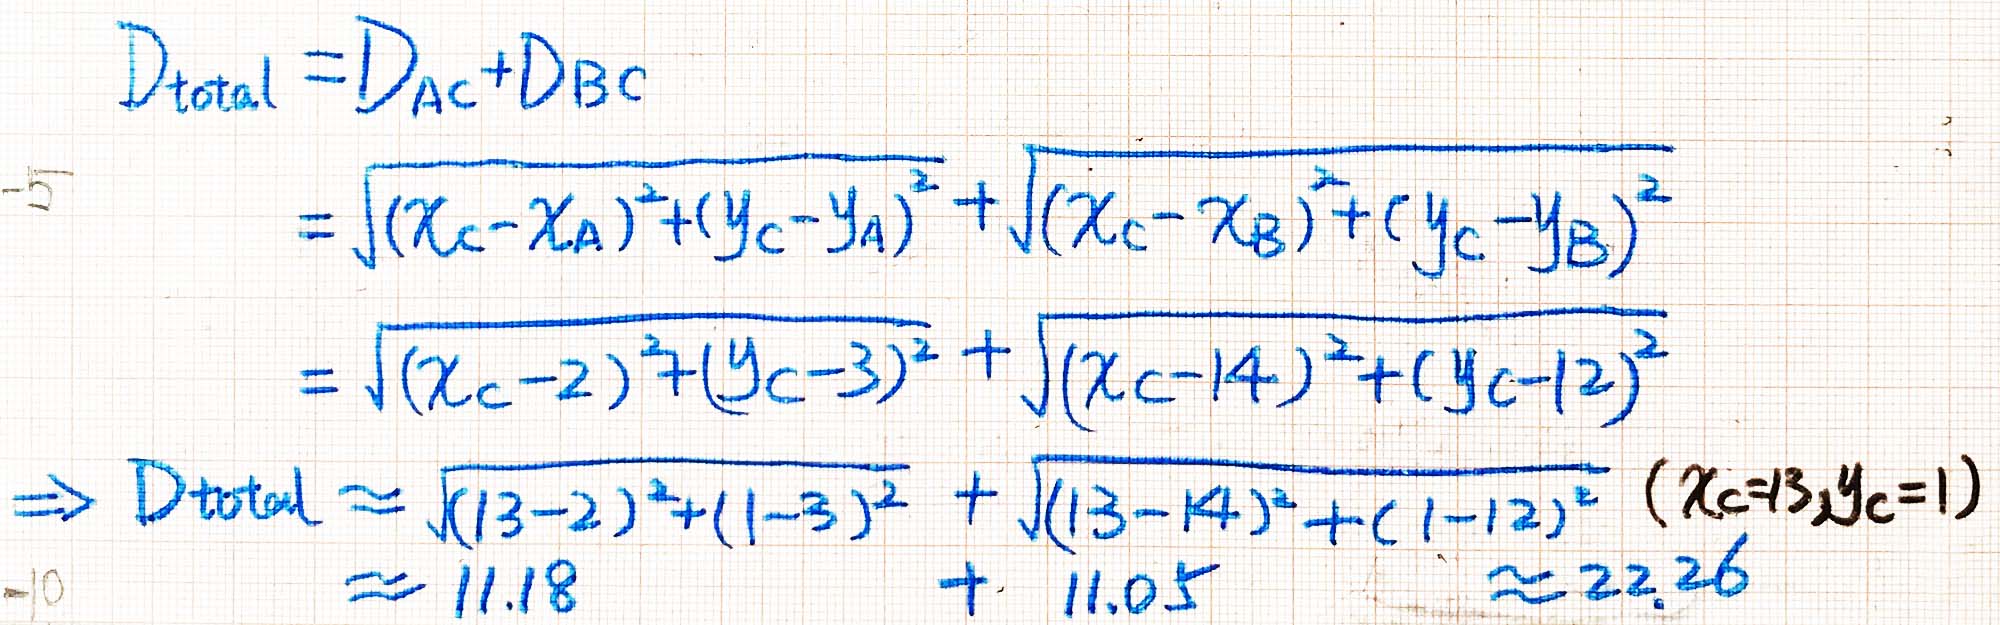 D_total = D_AC + D_BC
-5
= √((x_C - x_A)² + (y_C - y_A)²) + √((x_C - x_B)² + (y_C - y_B)²)
= √((x_C - 2)² + (y_C - 3)²) + √((x_C - 14)² + (y_C - 12)²)
⇒ D_total ≈ √((13 - 2)² + (1 - 3)²) + √((13 - 14)² + (1 - 12)²) (x_C = 13, y_C = 1)
-10 ≈ 11.18 + 11.05 ≈ 22.26